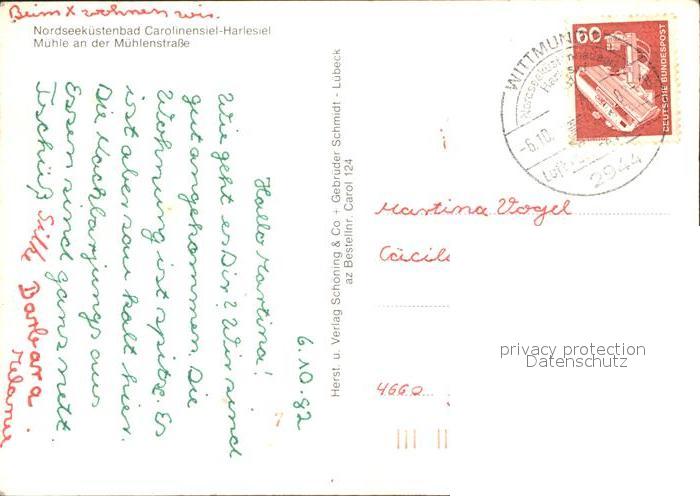 Beim X wohnen wir.
Nordseeküstenbad Carolinensiel-Harlesiel
Mühle an der Mühlenstraße
6.10.82
Hallo Martina!
Wie geht es Dir? Wir sind
gut angekommen. Die
Wohnung ist spitze. Es
ist aber sau kalt hier.
Die Nachbarjungs aus
Essen sind ganz nett.
Tschüß Silke Barbara
Melanie
Herst. u. Verlag Schöning & Co + Gebrüder Schmidt - Lübeck
az Bestellnr. Carol 124
60
DEUTSCHE BUNDESPOST
WITTMUN
-6.10.
2944
Martina Vogel
Cäcil
privacy protection
Datenschutz
4660